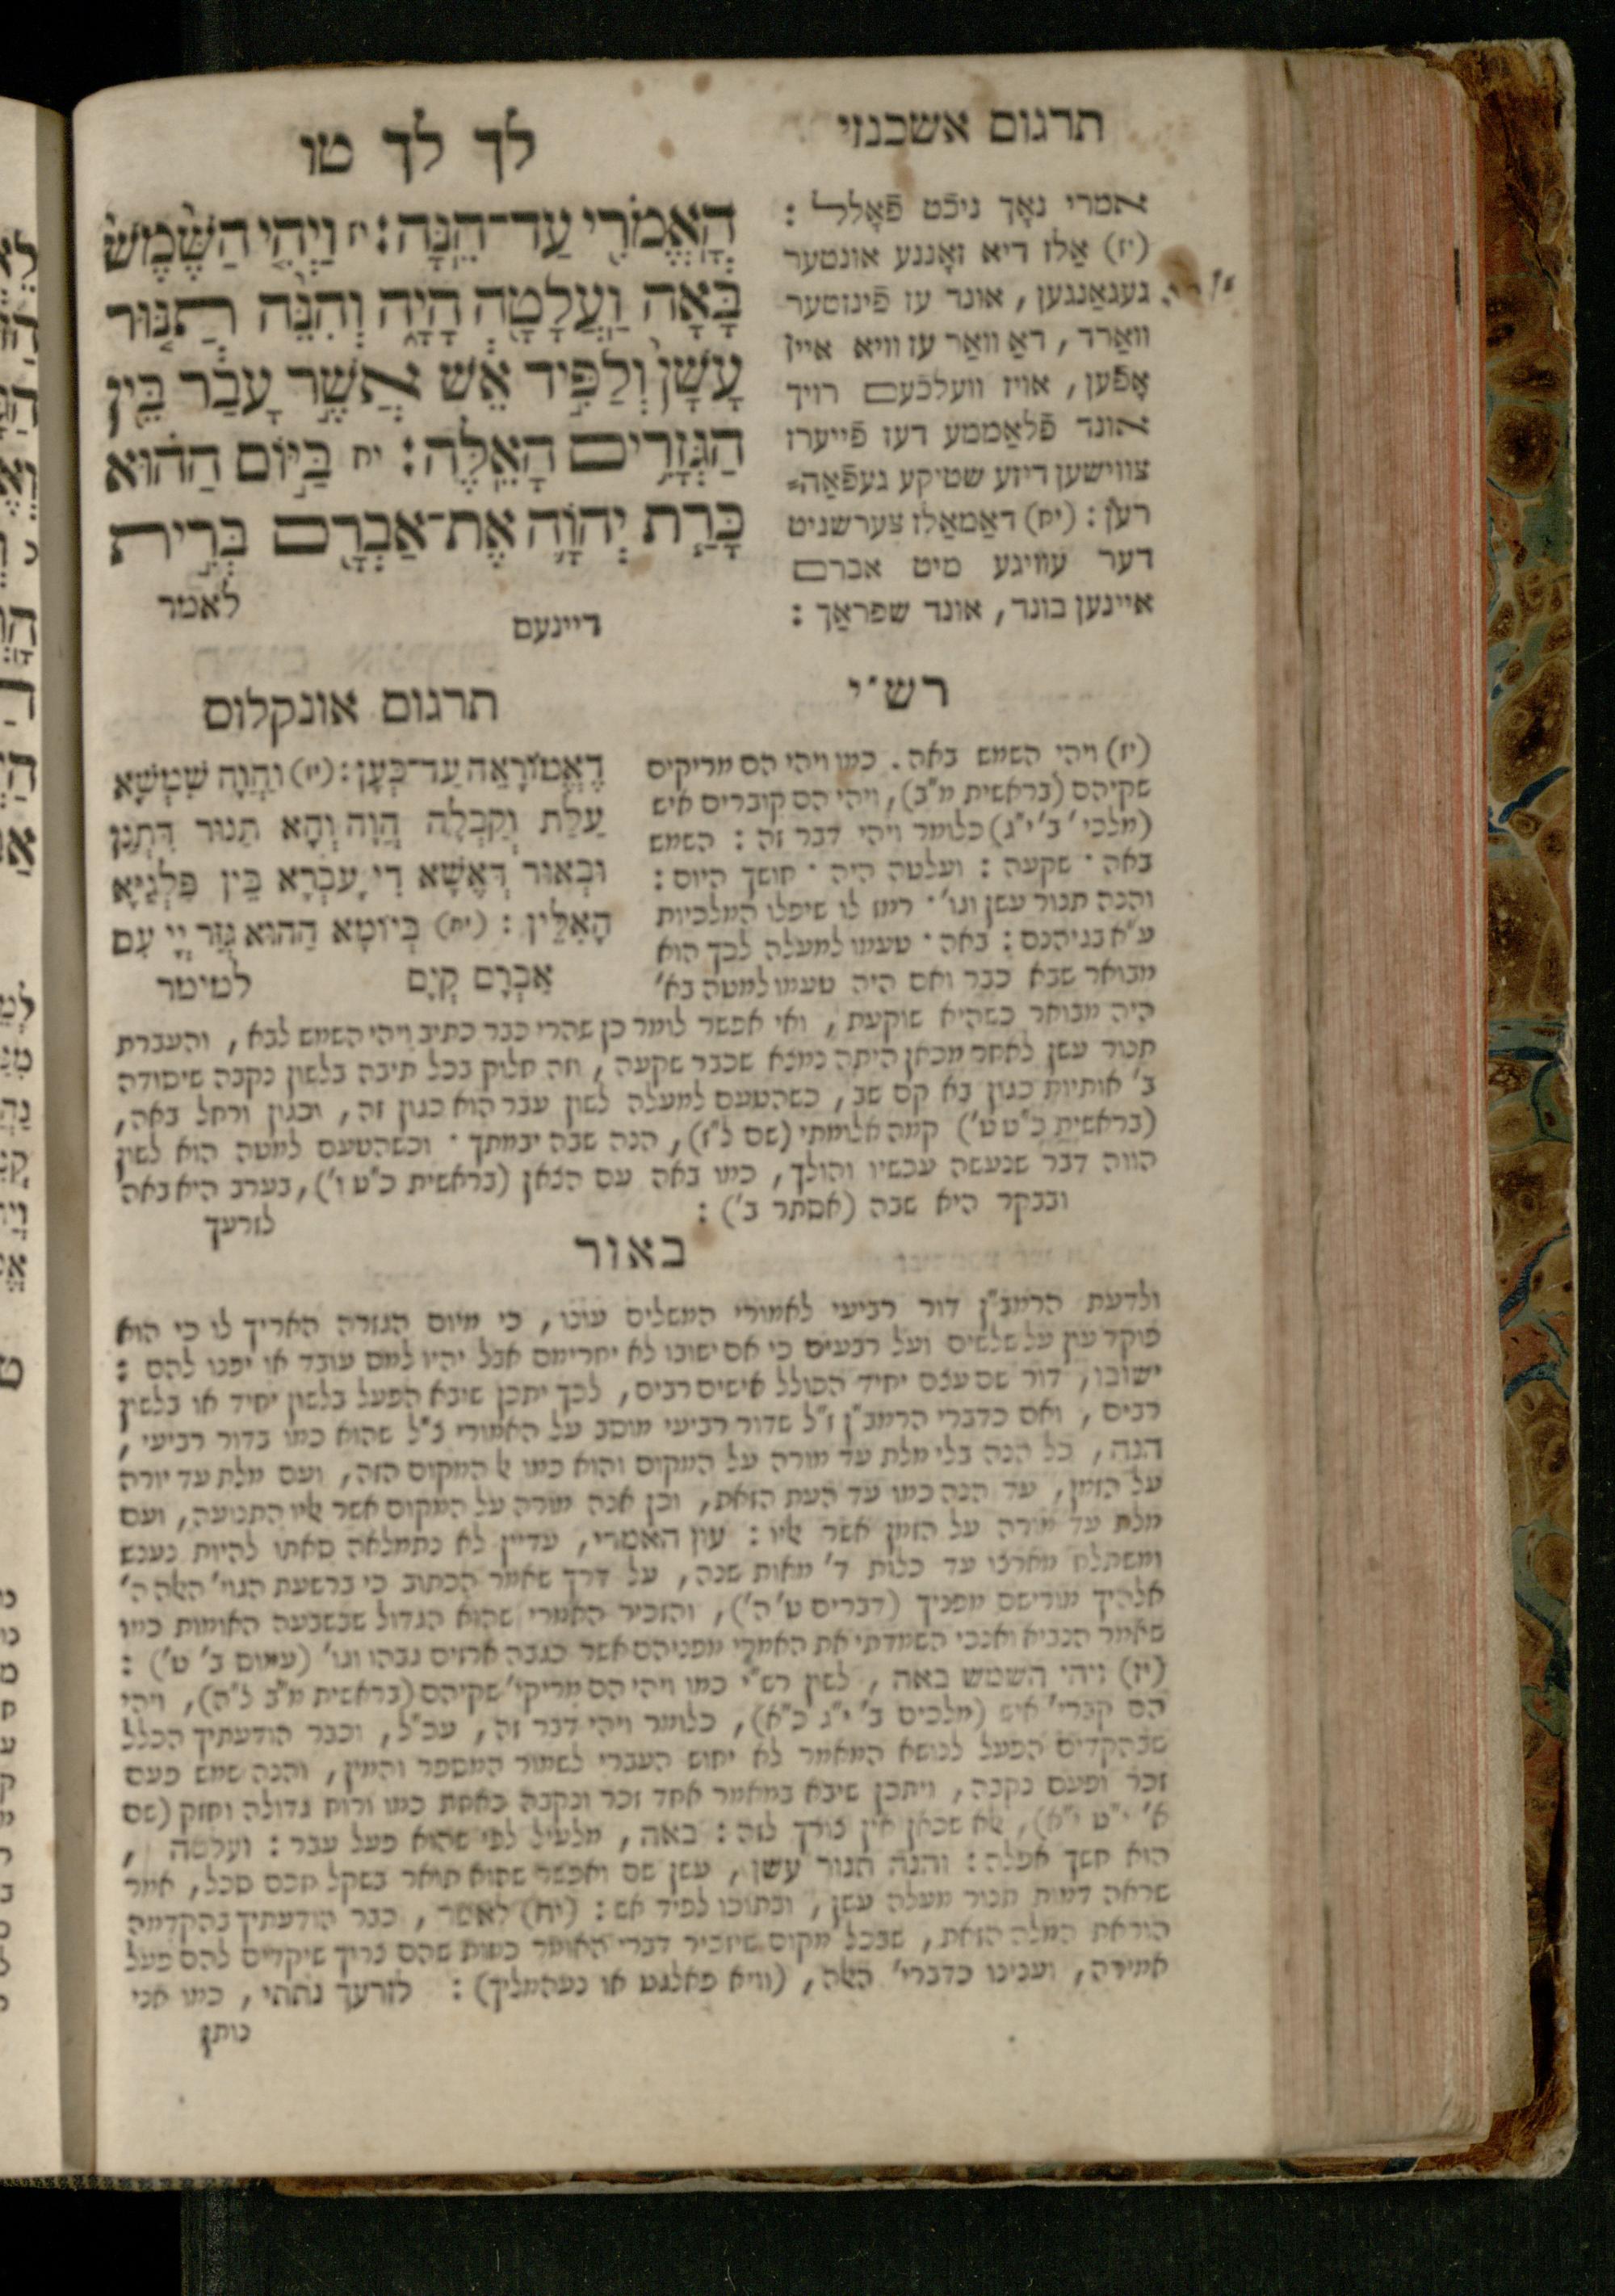 תרגום אשכנזי
לך לך טו
אמרי נאָך ניכֿט פֿאָלל :
(יז) אַלז דיא זאָננע אונטער
געגאַנגען, אונד עז פֿינזטער
וואַרד, דאַ וואַר עז וויא איין
אָפֿען, אויז וועלכֿעם רויך
אונד פֿלאַממע דעז פֿייערז
צווישען דיזע שטיקע געפֿאַה⸗
רען : (יח) דאַמאַלז צערשניט
דער עוויגע מיט אברם
איינען בונד, אונד שפראַך :
דיינעם
הָאֱמֹרִי עַד־הֵנָּה : יז וַיְהִי הַשֶּׁמֶשׁ
בָּאָה וַעֲלָטָה הָיָה וְהִנֵּה תַנּוּר
עָשָׁן וְלַפִּיד אֵשׁ אֲשֶׁר עָבַר בֵּין
הַגְּזָרִים הָאֵלֶּה : יח בַּיּוֹם הַהוּא
כָּרַת יְהוָֹה אֶת־אַבְרָם בְּרִית
לאמר
רש״י
(יז) ויהי השמש באה. כמו ויהי הם מריקים
שקיהם (בראשית מ"ב), ויהי הם קוברים איש
(מלכי' ב' י"ג) כלומר ויהי דבר זה : השמש
באה · שקעה : ועלטה היה · חושך היום :
והנה תנור עשן וגו' · רמז לו שיפלו המלכיות
ע"א בגיהנם : באה · טעמו למעלה לכך הוא
מבואר שבא כבר ואם היה טעמו למטה בא'
היה מבואר כשהיא שוקעת, ואי אפשר לומר כן שהרי כבר כתיב ויהי השמש לבא, והעברת
תנור עשן לאחר מכאן היתה נמצא שכבר שקעה, וזה חלוק בכל תיבה בלשון נקבה שיסודה
ב' אותיות כגון בא קם שב, כשהטעם למעלה לשון עבר הוא כגון זה, וכגון ורחל באה,
(בראשית כ"ט ט') קמה אלומתי (שם ל"ז), הנה שבה יבמתך · וכשהטעם למטה הוא לשון
הווה דבר שנעשה עכשיו והולך, כמו באה עם הצאן (בראשית כ"ט ו'), בערב היא באה
ובבקר היא שבה (אסתר ב') :
לזרעך
תרגום אונקלוס
דֶאֱמוֹרָאָה עַד־כְּעָן : (יז) וַהֲוָה שִׁמְשָׁא
עַלַּת וְקַבְלָה הֲוָה וְהָא תַנּוּר דִּתְנַן
וּבְעוּר דְּאֶשָּׁא דִי עֲבָרָא בֵּין פִּלְגַיָּא
הָאִלֵּין : (יח) בְּיוֹמָא הַהוּא גְּזַר יְיָ עִם
אַבְרָם קְיָם
למימר
באור
ולדעת הרמב"ן דור רביעי לאמורי המשלים עונו, כי מיום הגזרה האריך לו כי הוא
פוקד עון על שלשים ועל רבעים כי אם ישובו לא יחרימם אבל יהיו למס עובד או יפנו להם :
ישובו, דור שם עצם יחיד הכולל אישים רבים, לכך יתכן שיבא הפעל בלשון יחיד או בלשון
רבים, ואם כדברי הרמב"ן ז"ל שדור רביעי מוסב על האמורי צ"ל שהוא כמו בדור רביעי,
הנה, כל הנה בלי מלת עד מורה על המקום והוא כמו אל המקום הזה, ועם מלת עד יורה
על הזמן, עד הנה כמו עד העת הזאת, וכן אנה מורה על המקום אשר אליו התנועה, ועם
מלת עד מורה על הזמן אשר אליו : עון האמרי, עדיין לא נתמלאה סאתו להיות נענש
ומשתלח מארצו עד כלות ד' מאות שנה, על דרך שאמר הכתוב כי ברשעת הגוי' האלה ה'
אלהיך מורישם מפניך (דברים ט' ה'), והזכיר האמרי שהוא הגדול שבשבעה האומות כמו
שאמר הנביא ואנכי השמדתי את האמרי מפניהם אשר כגבה ארזים גבהו וגו' (עמוס ב' ט') :
(יז) ויהי השמש באה, לשון רש"י כמו ויהי הם מריקי' שקיהם (בראשית מ"ב ל"ה), ויהי
הם קברי' איש (מלכים ב' י"ג כ"א), כלומר ויהי דבר זה, עכ"ל, וכבר הודעתיך הכלל
שבהקדים הפעל לנושא המאמר לא יחוש העברי לשמור המספר והמין, והנה שמש פעם
זכר ופעם נקבה, ויתכן שיבא במאמר אחד זכר ונקבה כאחת כמו ורוח גדולה וחזק (שם
א' י"ט י"א), אלא שכאן אין צורך לזה : באה, מלעיל לפי שהוא פעל עבר : ועלטה,
הוא חשך אפלה : והנה תנור עשן, עשן שם ואפשר שהוא תואר בשקל חכם סכל, אמר
שראה דמות תנור מעלה עשן, ובתוכו לפיד אש : (יח) לאמר, כבר הודעתיך בהקדמה
הוראת המלה הזאת, שבכל מקום שיזכיר דברי האומר כמות שהם צריך שיקדים להם פעל
אמירה, וענינו כדברי' האלה, (וויא פאלגט או נעהמליך) : לזרעך נתתי, כמו אני
נותן